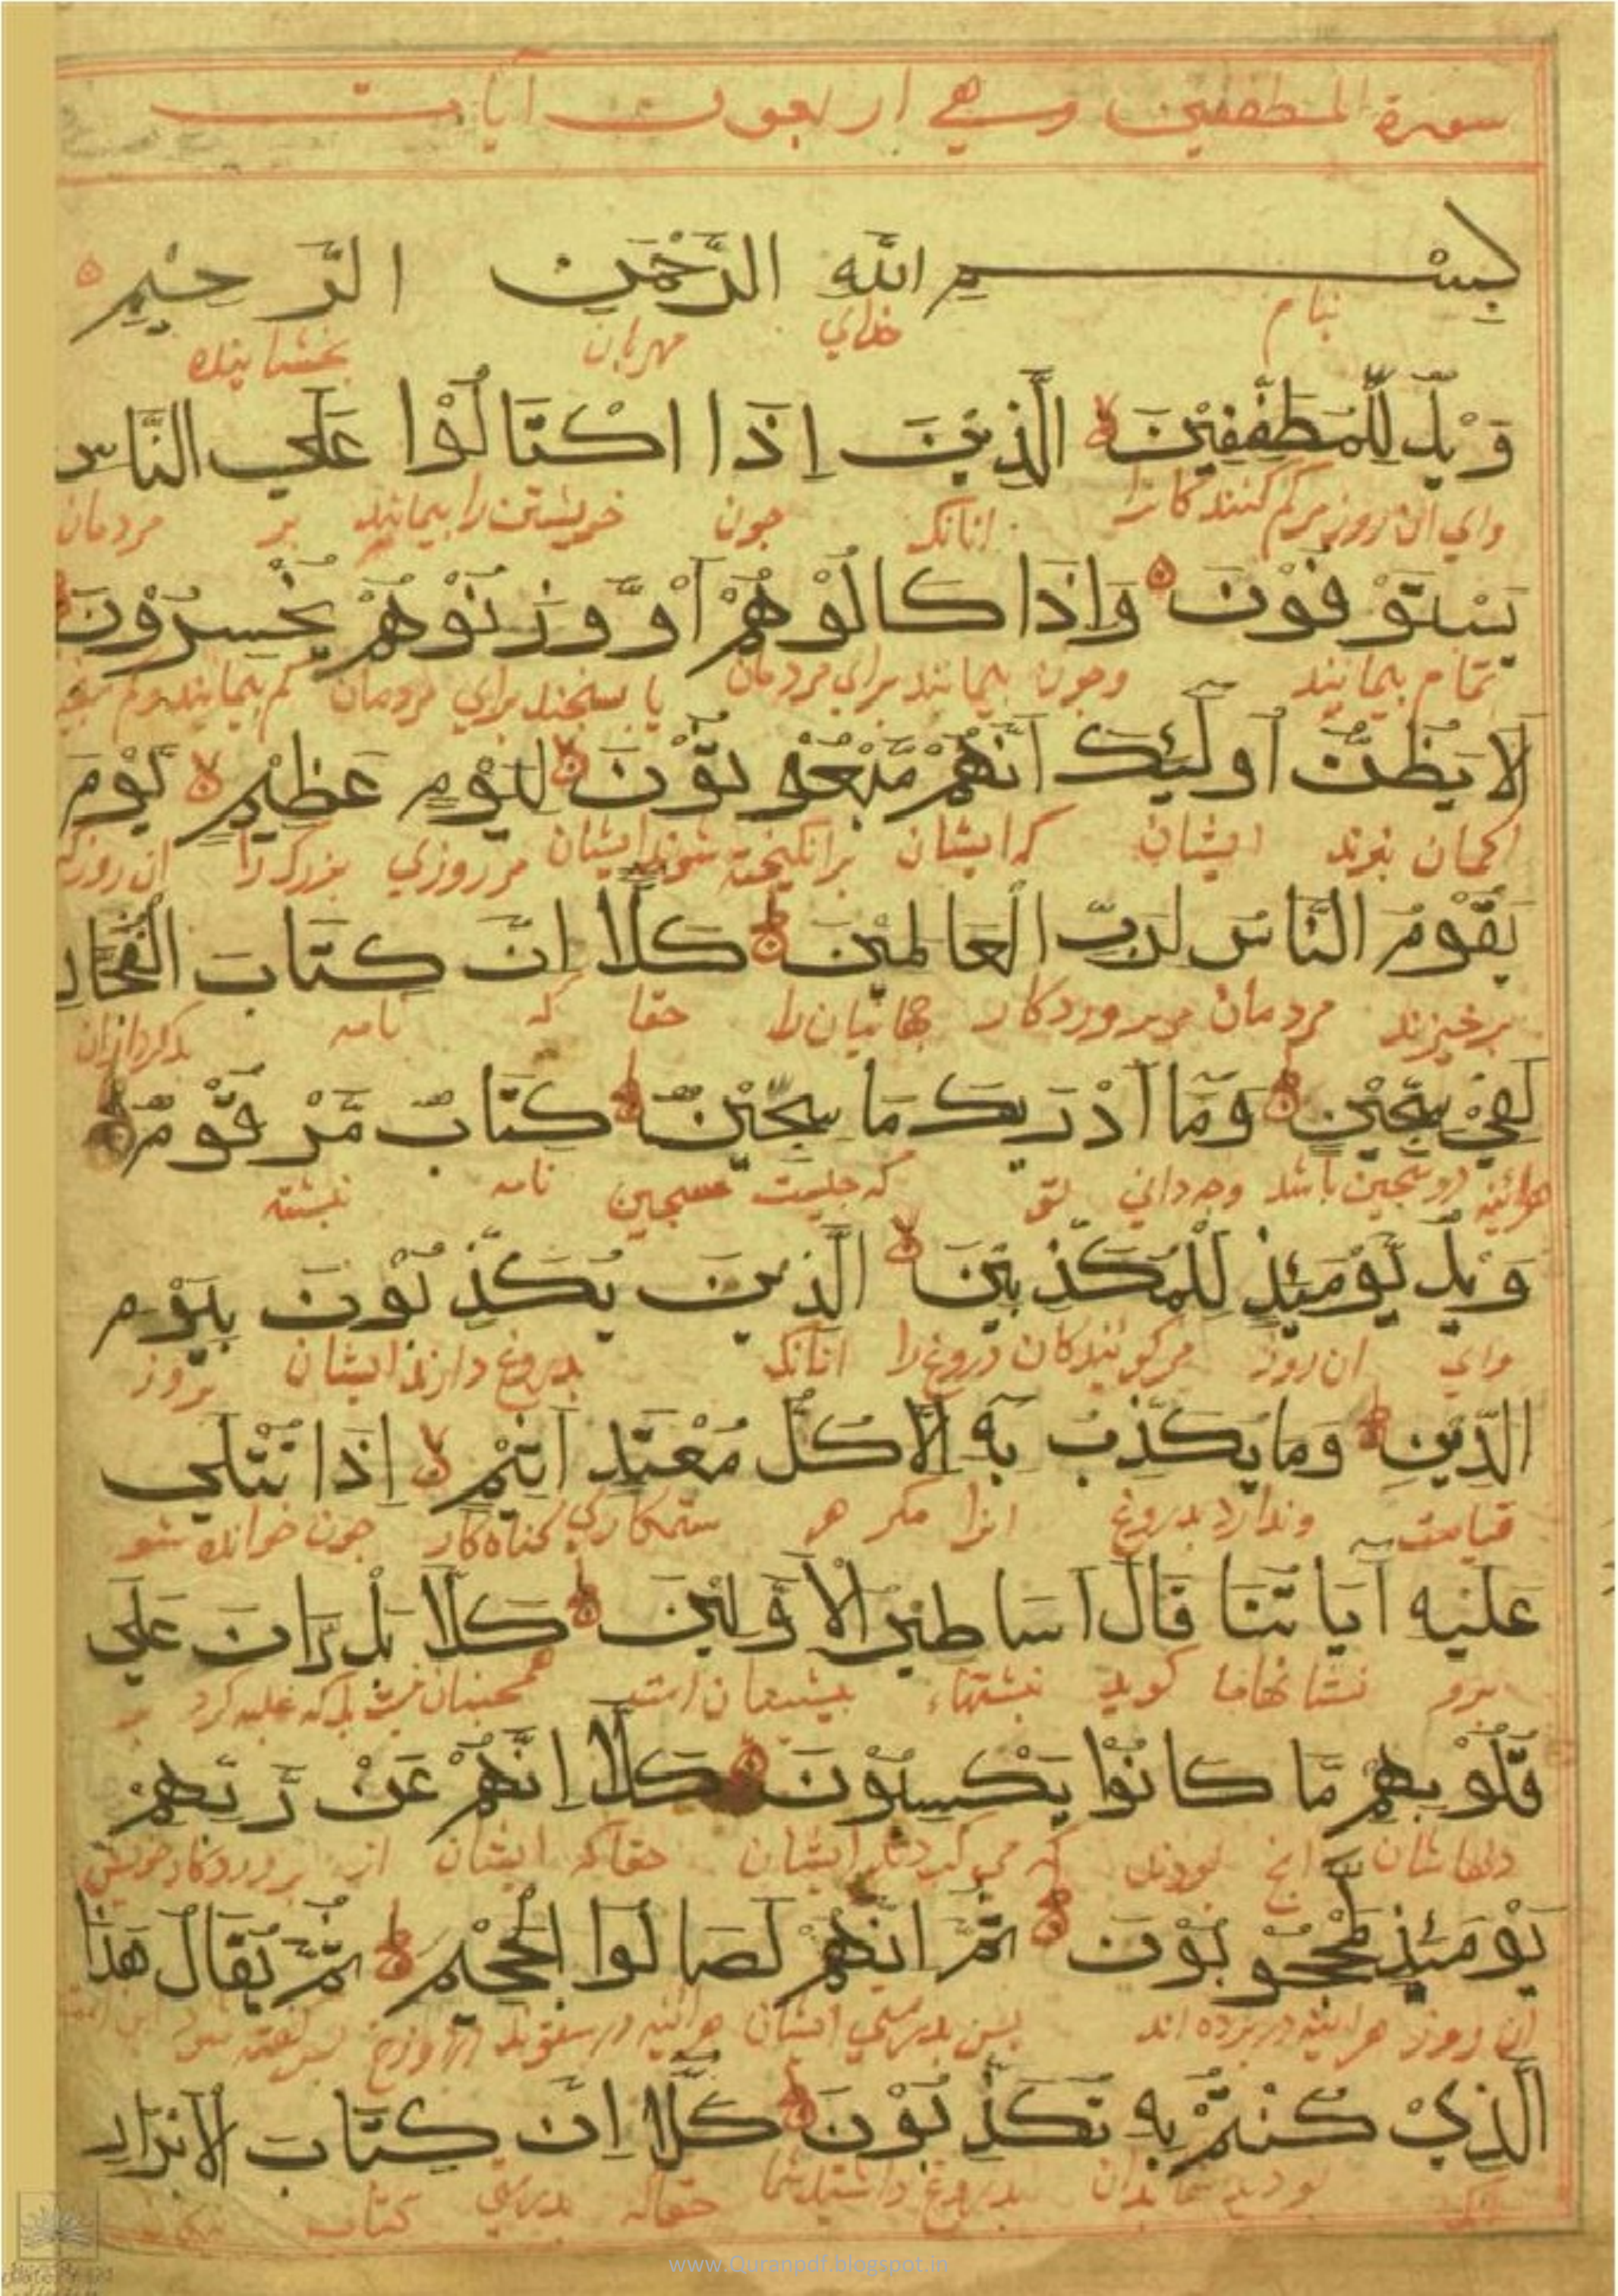 سورة المطففين وهي اربعون آيات
بِسْمِ اللّٰهِ الرَّحْمٰنِ الرَّحِيْمِ
بنام خدای مهربان بخشاینده
وَيْلٌ لِّلْمُطَفِّفِيْنَ الَّذِيْنَ اِذَا اكْتَالُوْا عَلَي النَّاسِ
وای ان روز مر کم کنندکانرا انانک جون خویشتن را بیمانید بر مردمان
يَسْتَوْفُوْنَ وَاِذَا كَالُوْهُمْ اَوْ وَّزَنُوْهُمْ يُخْسِرُوْنَ
تمام بیمانید وجون بیمانند برای مردمان یا بسنجند برای مردمان کم بیمانند وکم
اَلَا يَظُنُّ اُولٰٓئِكَ اَنَّهُمْ مَّبْعُوْثُوْنَ لِيَوْمٍ عَظِيْمٍ يَّوْمَ
اکمان نبرند ایشان که ایشان برانکیخته شوند ایشان مر روزی بزرک را ان روز که
يَقُوْمُ النَّاسُ لِرَبِّ الْعَالَمِيْنَ كَلَّا اِنَّ كِتَابَ الْفُجَّارِ
برخیزند مردمان مر بروردکار جهانیان را حقا که نامه بدکرداران
لَفِيْ سِجِّيْنٍ وَمَا اَدْرٰيكَ مَا سِجِّيْنٌ كِتَابٌ مَّرْقُوْمٌ
هرائینه در سجین باشد وجه دانی تو که جیست سجین نامه نبشته
وَيْلٌ يَّوْمَئِذٍ لِّلْمُكَذِّبِيْنَ الَّذِيْنَ يُكَذِّبُوْنَ بِيَوْمِ
وای ان روز مر کویندکان دروغ را انانک بدروغ دارند ایشان بروز
الدِّيْنِ وَمَا يُكَذِّبُ بِهٖ اِلَّا كُلُّ مُعْتَدٍ اَثِيْمٍ اِذَا تُتْلٰي
قیامت وندارد بدروغ انرا مکر هر ستمکاری کناه کار جون خوانده شو
عَلَيْهِ اٰيَاتُنَا قَالَ اَسَاطِيْرُ الْاَوَّلِيْنَ كَلَّا بَلْ رَانَ عَلٰي
برو نشانهاما کوید نبشتهاء بیشینیان است همجنان نیست بلکه غلبه کرد بر
قُلُوْبِهِمْ مَّا كَانُوْا يَكْسِبُوْنَ كَلَّا اِنَّهُمْ عَنْ رَّبِّهِمْ
دلهاشان انج بودند که می کردند ایشان حقا که ایشان از بروردکار خویش
يَوْمَئِذٍ لَّمَحْجُوْبُوْنَ ثُمَّ اِنَّهُمْ لَصَالُوا الْجَحِيْمِ ثُمَّ يُقَالُ هٰذَا
ان روز هراینه در برده اند بس بدرستی ایشان هراینه در دوزخ بس کفته شود این
الَّذِيْ كُنْتُمْ بِهٖ تُكَذِّبُوْنَ كَلَّا اِنَّ كِتَابَ الْاَبْرَارِ
انک بودید شما بدان بدروغ داشتید شما حقا که بدرستی کتاب
www.Quranpdf.blogspot.in